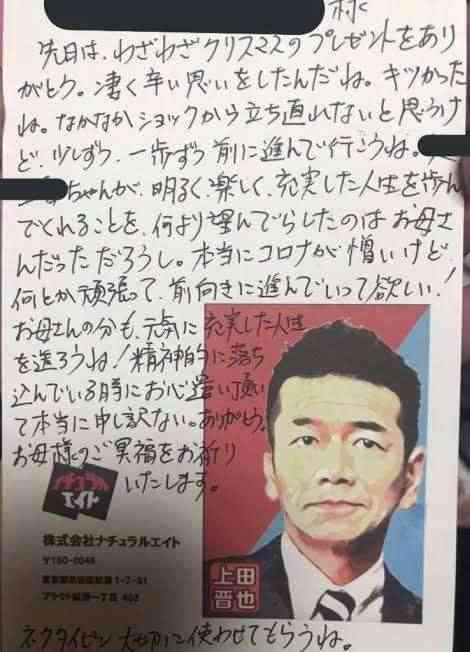 様
先日は、わざわざクリスマスのプレゼントをあり
がとう。凄く辛い思いをしたんだね。キツかった
ね。なかなかショックから立ち直れないと思うけ
ど、少しずつ、一歩ずつ前に進んで行こうね。
ちゃんが、明るく、楽しく、充実した人生を歩ん
でくれることを、何より望んでらしたのはお母さ
んだっただろうし。本当にコロナが憎いけど、
何とか頑張って、前向きに進んでいって欲しい!
お母さんの分も、元気に充実した人生
を送ろうね!精神的に落ち
込んでいる時にお心遣い頂い
て本当に申し訳ない。ありがとう。
お母様のご冥福をお祈り
いたします。
ナチュラル
エイト
株式会社ナチュラルエイト
〒150-0046
東京都渋谷区松濤1-7-31
402
上田
晋也
ネクタイピン大切に使わせてもらうね。